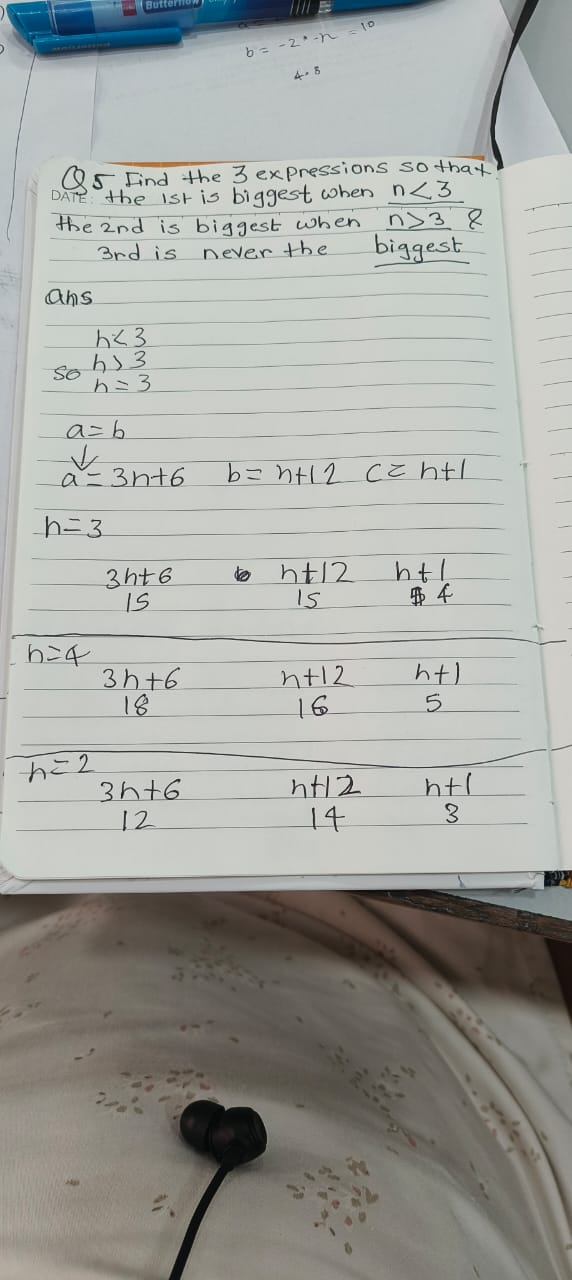 Butterflow
b = -2 * -n = 10
4.8
Q5 Find the 3 expressions so that
DATE: the 1st is biggest when n<3
the 2nd is biggest when n>3 &
3rd is never the biggest
ans
n<3
n>3
so n=3
a=b
↓
a=3n+6 b=n+12 c=n+1
n=3
3n+6 n+12 n+1
15 15 4
n=4
3n+6 n+12 n+1
18 16 5
n=2
3n+6 n+12 n+1
12 14 3